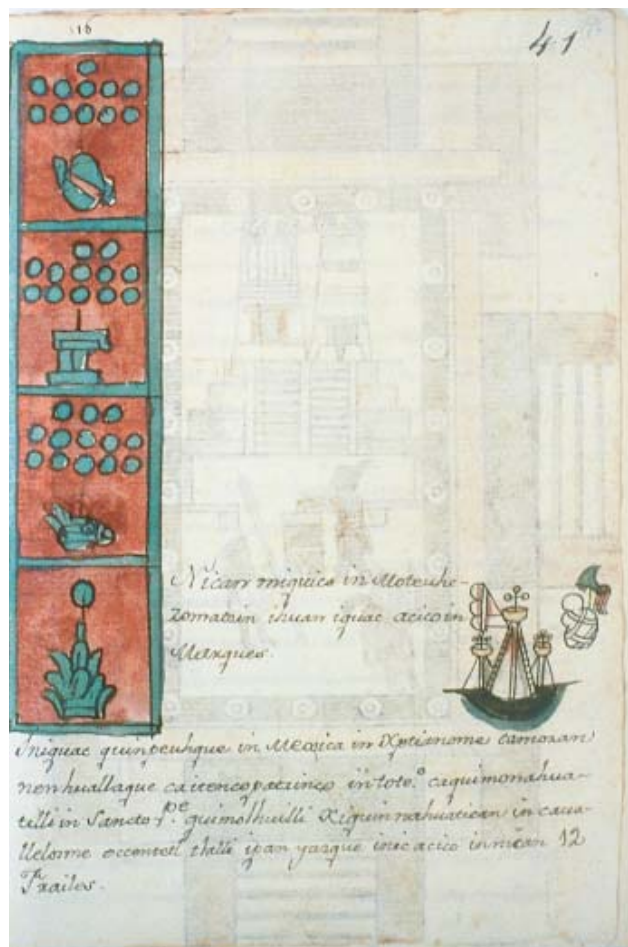 516
41
Nican miquico in Moteuhc-
zomatzin ihuan iquac acico in
Marques.
Iniquac quinpeuhque in Mexica in Xptianome camoxan
nonhuallaque ca itencopatzinco in toto.º caquimonahua-
tilli in Sancto Pe. quimolhuilli Xiquinnahuatican in cava-
llelosme occentetl tlalli ipan yazque inic acico in nican 12
Frailes.